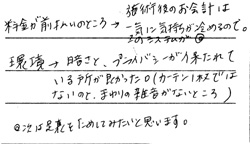 料金が前払いのところ→施術後のお会計は
一気に気持が冷めるので。
このシステムが◎
環境→暗さと、プライバシーが保たれて
いる所が良かった。(カーテン1枚では
ないので、まわりの雑音がないところ)
◎次は足裏をためしてみたいと思います。